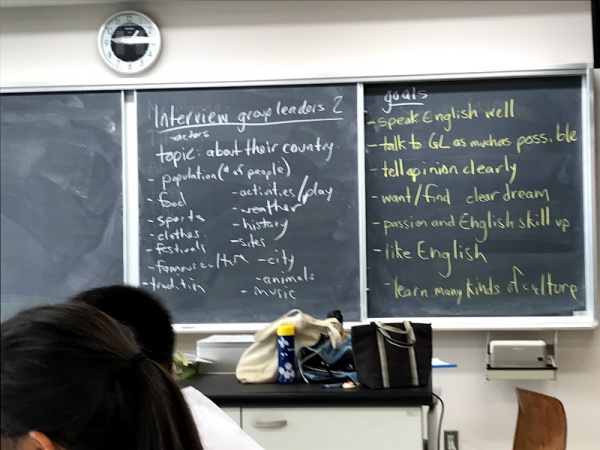 Interview group leaders 2
actors
topic: about their country
- population (# of people)
- food
- sports
- clothes
- festivals
- famous culture
- tradition
- activities/play
- weather
- history
- sites
- city
- animals
- music
goals
- speak English well
- talk to GL as much as possible
- tell opinion clearly
- want/find clear dream
- passion and English skill up
- like English
- learn many kinds of culture